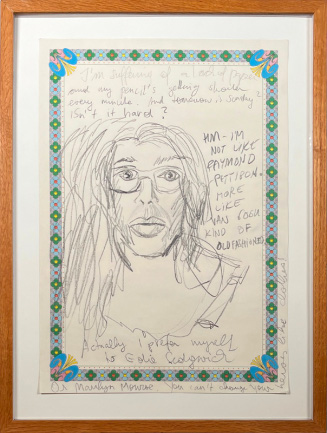 I'm suffering of a lack of
and my pencil's getting shorter
every minute. And tomorrow is Sunday
isn't it hard?
HM - I'M
NOT LIKE
RAYMOND
PETTIBON.
MORE
LIKE
VAN GOGH
KIND OF
OLDFASHIONED
Actually I prefer myself
to Edie Sedgwick
Or Marilyn Monroe You can't change your